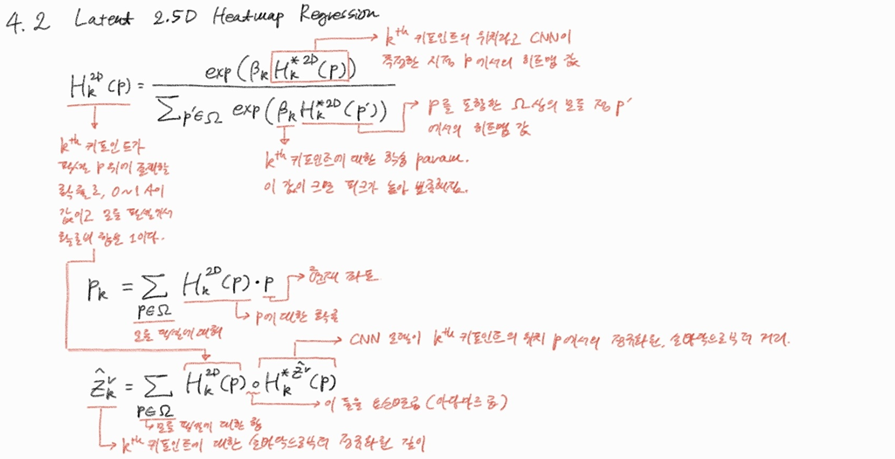 4.2 Latent 2.5D Heatmap Regression
kth 키포인트의 위치라고 CNN이
측정한 시점 p에서의 히트맵 값
H_k^{2D}(p) = exp(β_k H_k^{*2D}(p)) / Σ_{p'∈Ω} exp(β_k H_k^{*2D}(p'))
p를 포함한 Ω상의 모든 점 p'
에서의 히트맵 값
kth 키포인트에 대한 학습 param.
이 값이 크면 피크가 높아 뾰족해짐.
kth 키포인트가
픽셀 p 위에 존재할
확률로, 0~1 사이
값이고 모든 픽셀에서
확률의 합은 1이다.
p_k = Σ_{p∈Ω} H_k^{2D}(p)·p
현재 좌표
p에 대한 확률
모든 픽셀에 대해
CNN 모델이 kth 키포인트의 위치 p에서의 정규화된, 손바닥으로부터 거리.
ẑ_k^r = Σ_{p∈Ω} H_k^{2D}(p) ∘ H_k^{*ẑ^r}(p)
이 둘을 요소별로 곱 (아다마르 곱)
모든 픽셀에 대한 합
kth 키포인트에 대한 손바닥으로부터 정규화된 깊이